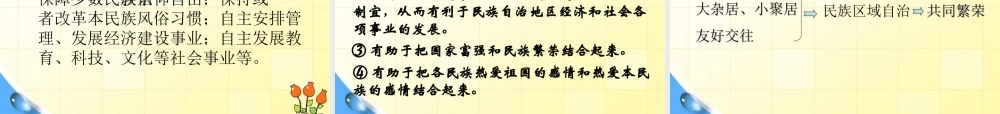 者改革本民族风俗习惯；自主安排管
理、发展经济建设事业；自主发展教
育、科技、文化等社会事业等。
制宜，从而有利于民族自治地区经济和社会各
项事业的发展。
③ 有助于把国家富强和民族繁荣结合起来。
④ 有助于把各民族热爱祖国的感情和热爱本民
族的感情结合起来。
大杂居、小聚居
友好交往
民族区域自治
共同繁荣